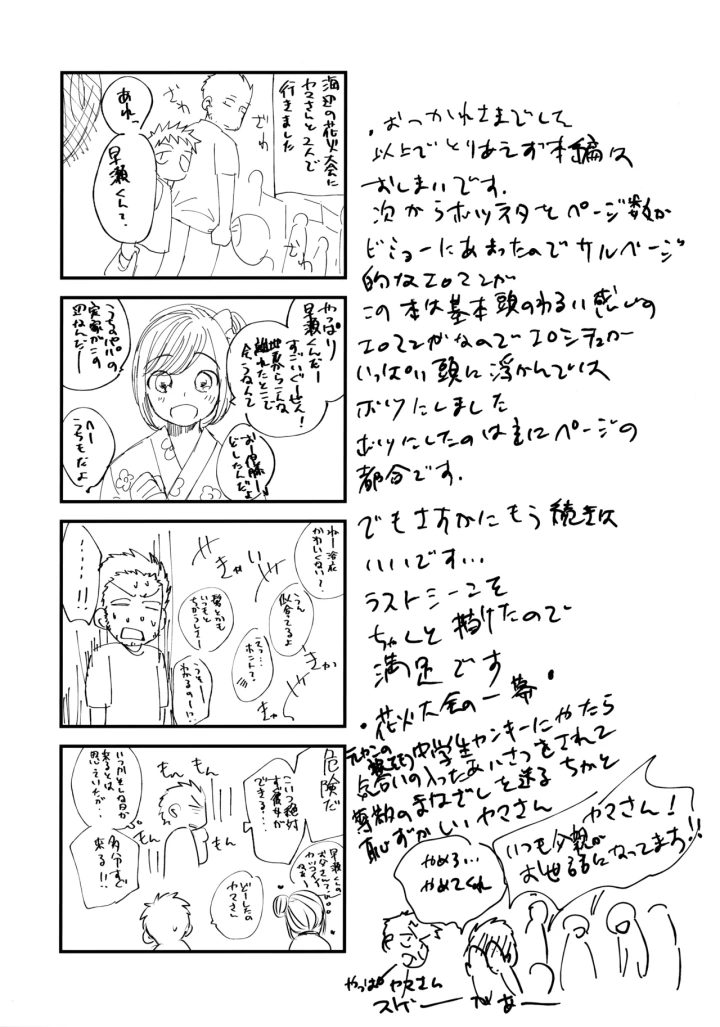 海辺の花火大会に
ヤマさんと2人で
行きました
ざわ
ざわ
あれっ
早瀬くんて?
やっぱり
早瀬くんだー
すごいぐーぜん!
地元からこんな
離れたとこで
会うなんて
うちのパパの
実家がこの
辺なんだー
おー伊藤ー
どーしたんだよ
へー
うちもだよ
ねー浴衣
かわいくない?
きゃっ
きゃい
きゃっ
うん
似合てるよ
髪とかも
いつもと
ちがうしさー
えっ…
ホント?
うっそー
わかるのー!?
……!!
危険だ
こいつ絶対
すぐ彼女が
できる…
もんもん
もんもん
いつかそんな日が
来るとは
思ていたが…
多分すぐ
来る!!
早瀬くんの
お父さんて?
カッコイイ
なぁ
どーしたの
ヤマさん
・おつかれさまでした
以上でとりあえず本編は
おしまいです.
次からボツネタとページ数が
ビミョーにあまったのでサルベージ
的なエロマンが
この本は基本頭のわるい感じの
エロマンがなのでエロシチュが
いっぱい頭に浮かんでは
ボツにしました
ボツにしたのは主にページの
都合です.
でもさすがにもう続きは
いいです…
ラストシーンを
ちゃんと描けたので
満足です
・花火大会の一幕・
元ヤンの
中学生ヤンキーにやたら
気合いの入ったあいさつをされて
尊敬のまなざしを送るちかと
恥ずかしいヤマさん
ヤマさん!
いつも父親が
お世話になってます!!
やめろ…
やめてくれ
やっぱ ヤマさん
スゲー
があー